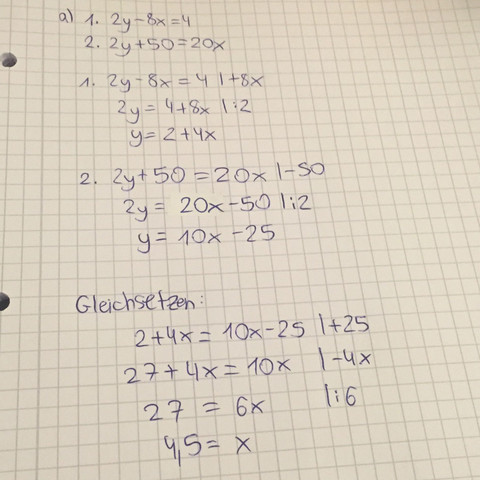 a) 1. 2y-8x=4
2. 2y+50=20x
1. 2y-8x=4 |+8x
2y=4+8x |:2
y=2+4x
2. 2y+50=20x |-50
2y=20x-50 |:2
y=10x-25
Gleichsetzen:
2+4x=10x-25 |+25
27+4x=10x |-4x
27=6x |:6
4,5=x